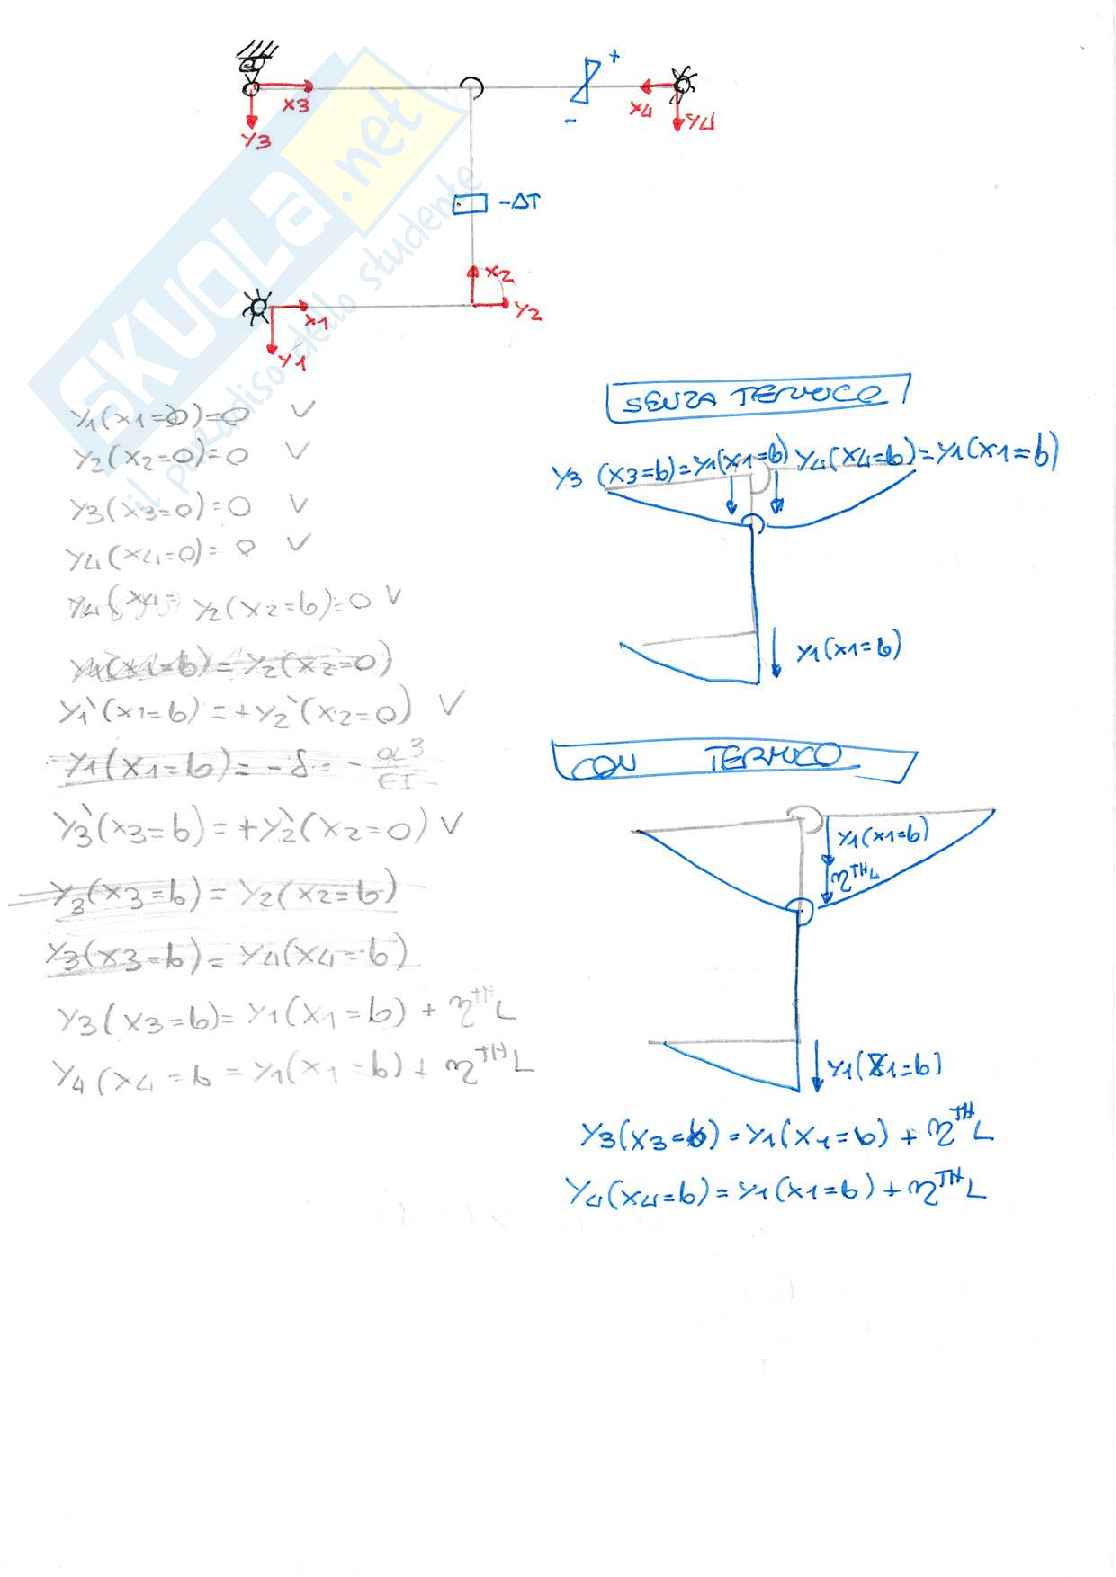 +
X3
X4
Y4
Y3
-
-ΔT
X2
Y2
X1
Y1
SKUOLA.net
il paradiso dello studente
SENZA TERMICO
Y1(X1=0)=0 V
Y2(X2=0)=0 V
Y3(X3=0)=0 V
Y4(X4=0)=0 V
Y2(X2=b)=0 V
Y1(X1=b)=Y2(X2=0)
Y1'(X1=b)=+Y2'(X2=0) V
Y1(X1=b)=-δ=-
Y3'(X3=b)=+Y2'(X2=0) V
Y3(X3=b)=Y2(X2=b)
Y3(X3=b)=Y4(X4=b)
Y3(X3=b)=Y1(X1=b)+η^TH L
Y4(X4=b=Y1(X1=b)+η^TH L
Y3(X3=b)=Y1(X1=b) Y4(X4=b)=Y1(X1=b)
Y1(X1=b)
CON TERMICO
Y1(X1=b)
η^TH L
Y1(X1=b)
Y3(X3=b)=Y1(X1=b)+η^TH L
Y4(X4=b)=Y1(X1=b)+η^TH L